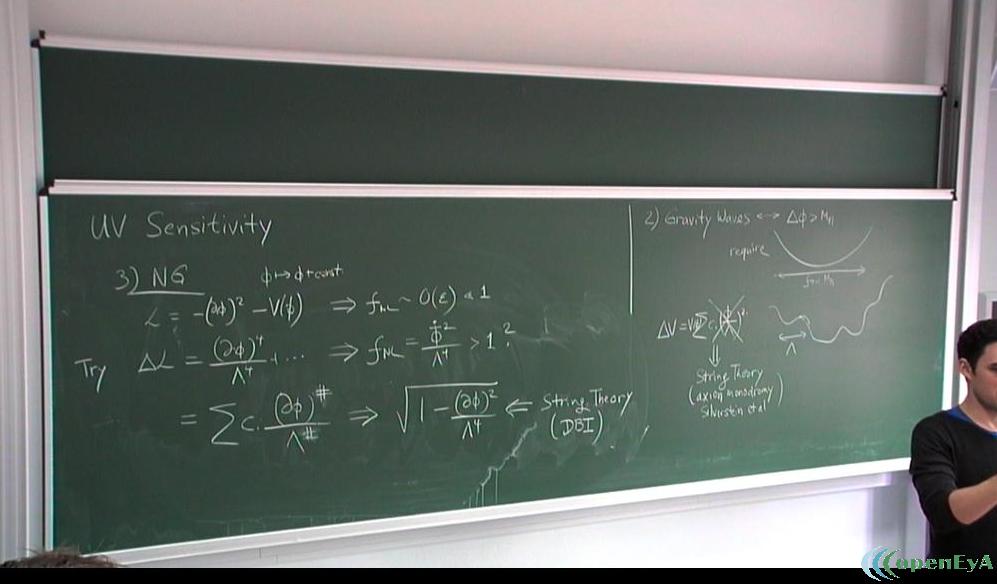 UV Sensitivity
3) NG φ ↦ φ + const
ℒ = -(∂φ)² - V(φ) ⇒ f_NL ~ O(ε) < 1
Try Δℒ = (∂φ)⁴/Λ⁴ + ... ⇒ f_NL = φ̇²/Λ⁴ > 1 ?
= Σ c (∂φ)^#/Λ^# ⇒ √(1 - (∂φ)²/Λ⁴) ⇐ String Theory
(DBI)
2) Gravity Waves ↔ Δφ > M_pl
require
Λ
⇓
String Theory
(axion monodromy
Silverstein et al)
openEyA